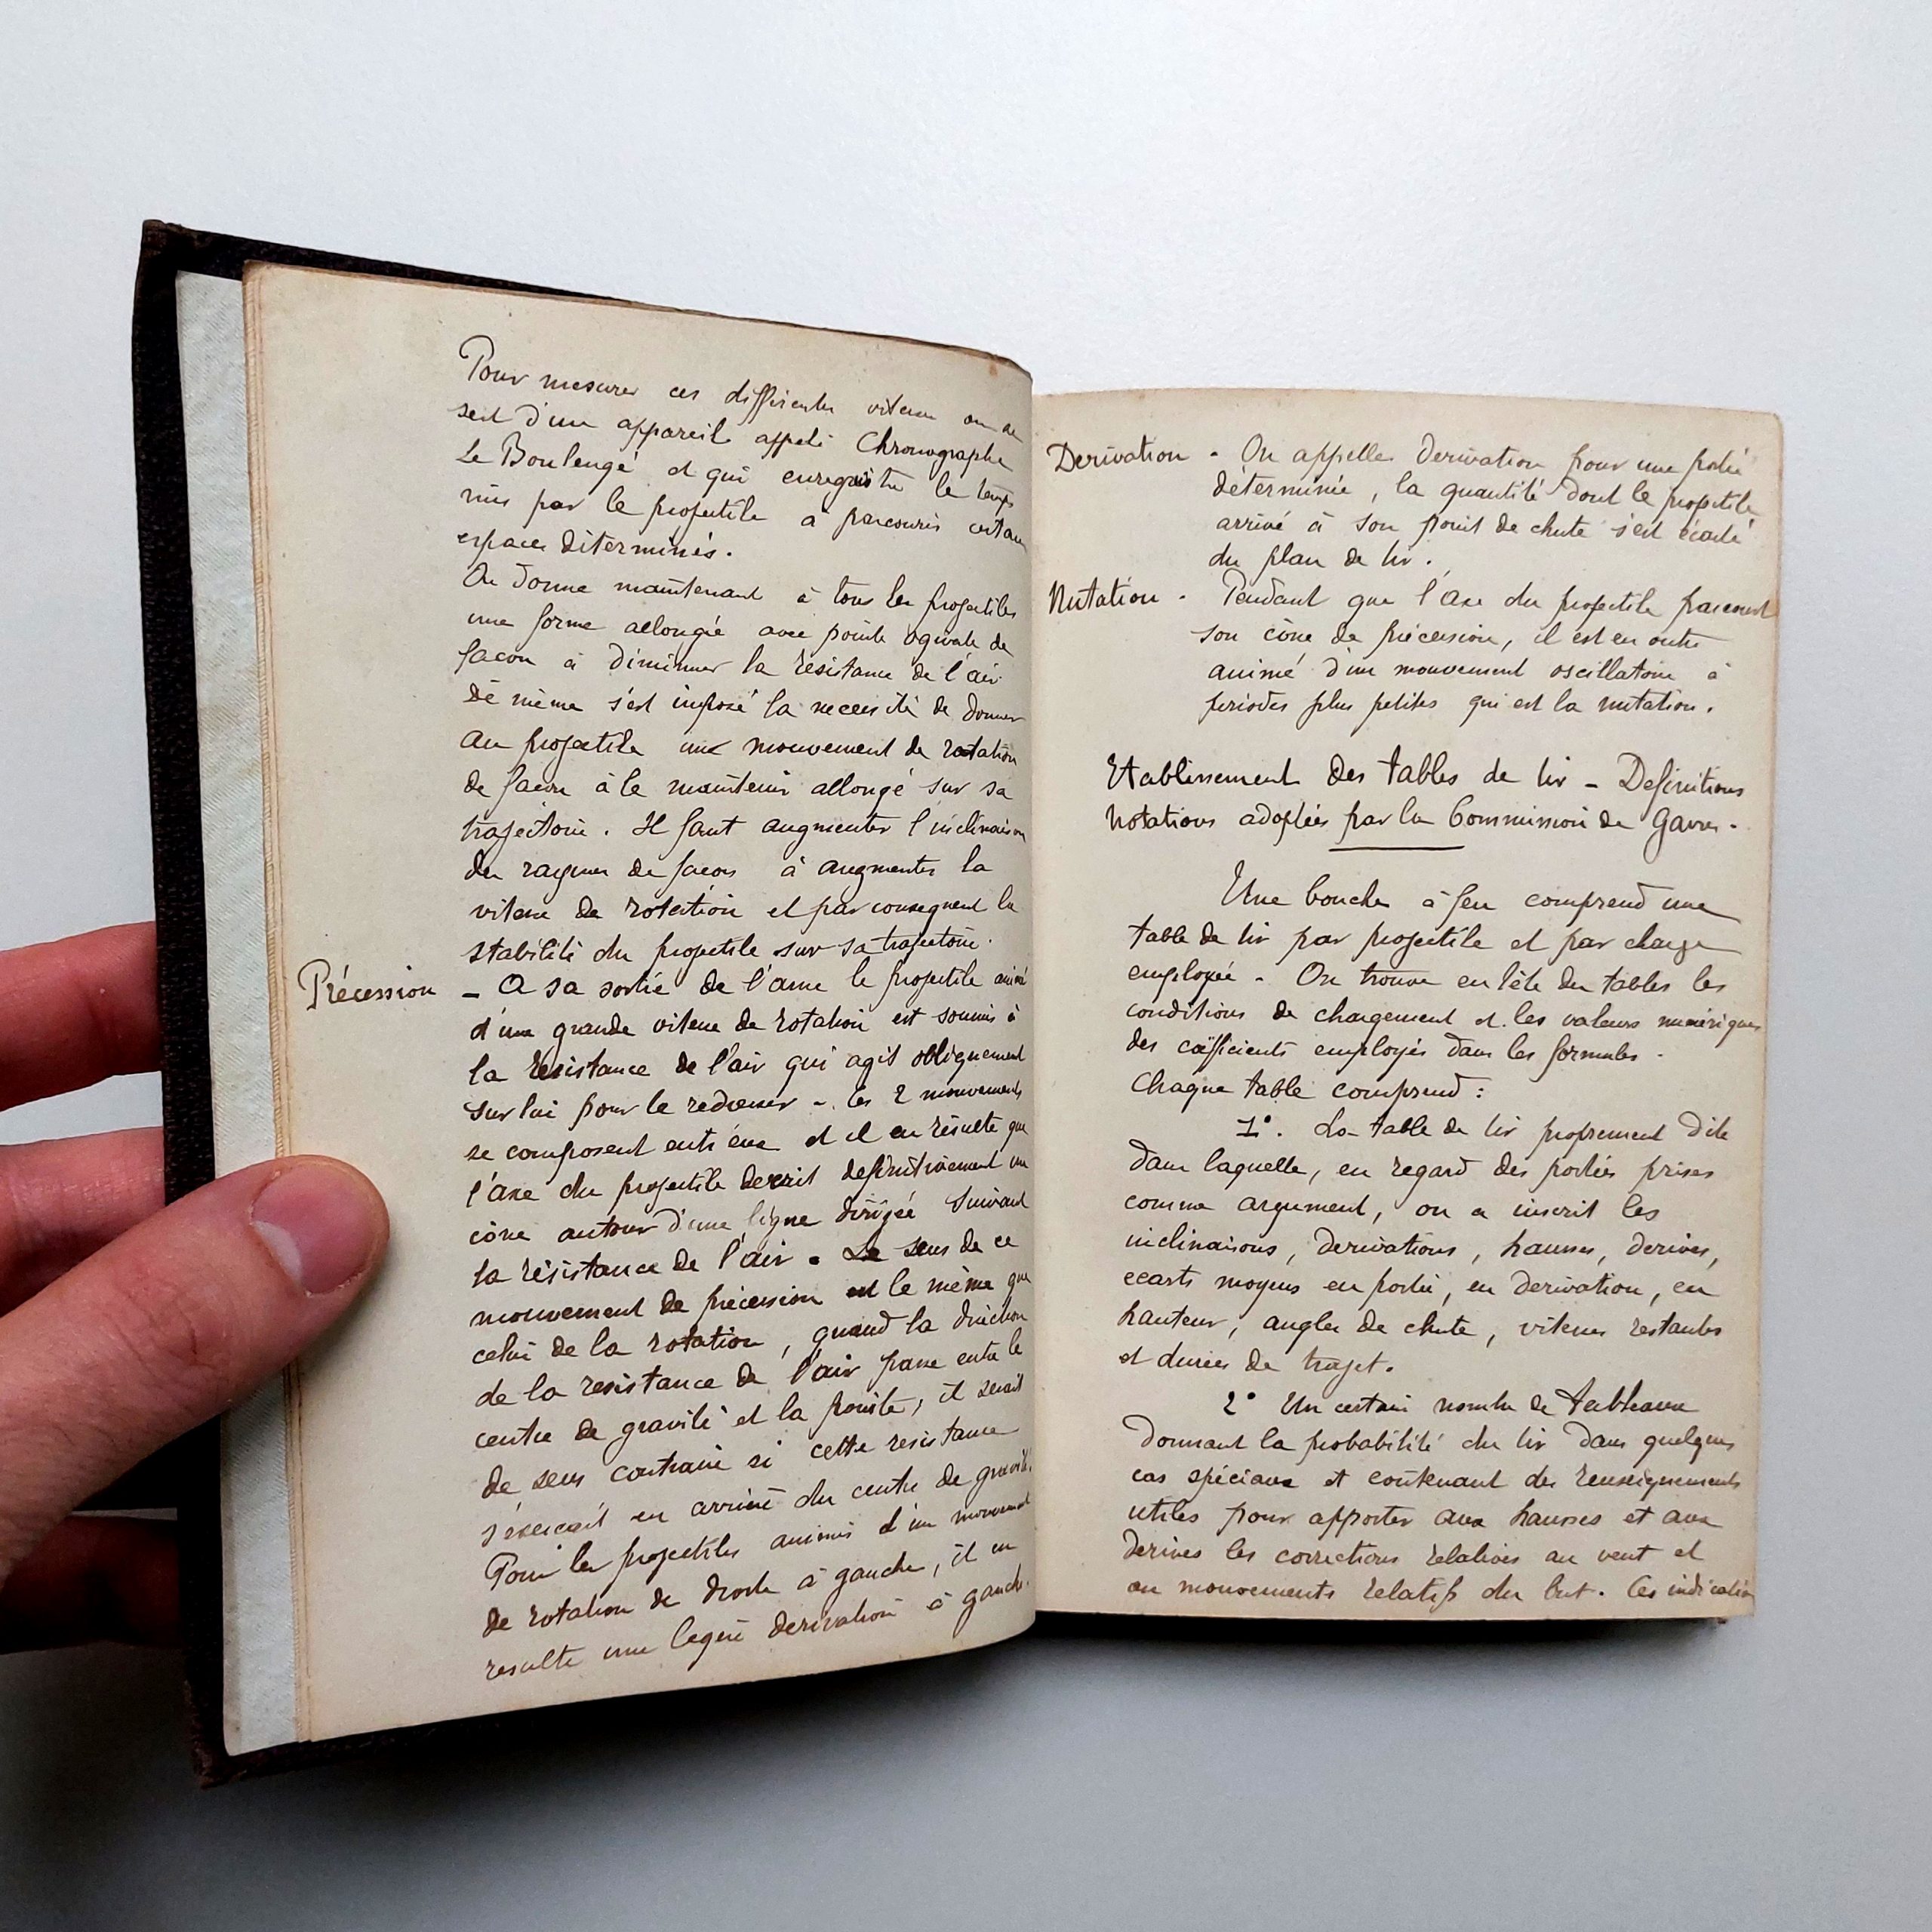 Pour mesurer ces differentes vitesses on se
sert d'un appareil appelé Chronographe
Le Boulengé et qui enregistre le temps
mis par le projectile à parcourir certains
espaces déterminés.
On donne maintenant à tous les projectiles
une forme allongée avec pointe ogivale de
façon à diminuer la résistance de l'air
de même s'est imposé la necessité de donner
au projectile une mouvement de rotation
de façon à le maintenir allongé sur sa
trajectoire. Il faut augmenter l'inclinaison
des rayures de façon à augmenter la
vitesse de rotation et par consequent la
stabilité du projectile sur sa trajectoire.
Précession - A sa sortie de l'ame le projectile animé
d'une grande vitesse de rotation est soumis à
la résistance de l'air qui agit obliquement
sur lui pour le redresser -. Ces 2 mouvements
se composent entr'eux et il en résulte que
l'axe du projectile decrit definitivement un
cône autour d'une ligne dirigée suivant
la résistance de l'air. Le sens de ce
mouvement de précession est le même que
celui de la rotation, quand la direction
de la resistance de l'air passe entre le
centre de gravité et la pointe; il serait
de sens contraire si cette resistance
s'exerçait en arrière du centre de gravité.
Pour les projectiles animés d'un mouvement
de rotation de droite à gauche, il en
resulte une legère derivation à gauche.
Derivation - On appelle Derivation pour une portée
déterminée, la quantité dont le projectile
arrivé à son point de chute s'est écarté
du plan de tir.
Nutation - Pendant que l'axe du projectile parcourt
son cône de précession, il est en outre
animé d'un mouvement oscillatoire à
périodes plus petites qui est la nutation.
Etablissement des tables de tir - Definitions
Notations adoptées par la Commission de Gavres -
Une bouche à feu comprend une
table de tir par projectile et par charge
employée - On trouve en tête des tables les
conditions de chargement et les valeurs numériques
des coëfficients employés dans les formules -
Chaque table comprend :
1°. La table de tir proprement dite
dans laquelle, en regard des portées prises
comme argument, on a inscrit les
inclinaisons, derivations, hausses, derives,
ecarts moyens en portée, en derivation, en
hauteur, angles de chute, vitesses restantes
et durées de trajet.
2° Un certain nombre de tableaux
donnant la probabilité du tir dans quelques
cas spéciaux et contenant des renseignements
utiles pour apporter aux hausses et aux
derives les corrections relatives au vent et
au mouvements relatifs du but. Ces indications